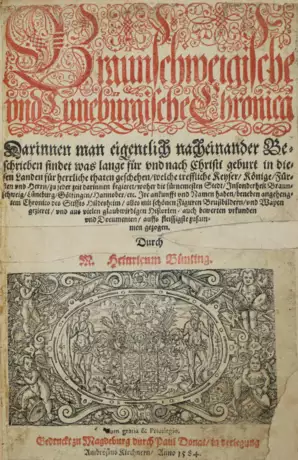 Braunschweigische
vnd Luneburgische Chronica
Darinnen man eigentlich nacheinander Be-
schrieben findet was lange für vnd nach Christi geburt in die-
sen Landen für herrliche thaten geschehen/welche treffliche Keyser/Könige/Für-
sten vnd Herrn/zu jeder zeit darinnen regieret/woher die fürnemesten Stedt/Insonderheit Braun-
schweig/Lüneburg/Göttingen/Hannober/etc. Jre ankunfft vnd Namen haben/beneben angeheng-
tem Chronico des Stiffts Hildesheim/alles mit schönen Figuren Brustbildern/vnd Wapen
gezieret/vnd aus vielen glaubwirdigen Historien/auch bewerten vrkunden
vnd Documenten/auffs fleissigste zusam-
men gezogen.
Durch
M. Heinricum Bünting.
Cum gratia & Priuilegio.
Gedruckt zu Magdeburg durch Paul Donat/in verlegung
Ambrosij Kirchners/Anno 1584.